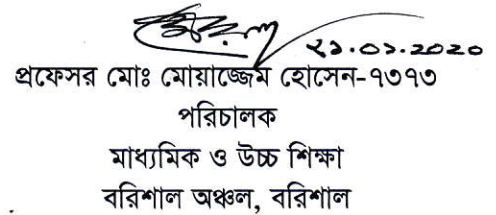 ২১.০১.2020
প্রফেসর মোঃ মোয়াজ্জেম হোসেন-৭৩৭৩
পরিচালক
মাধ্যমিক ও উচ্চ শিক্ষা
বরিশাল অঞ্চল, বরিশাল